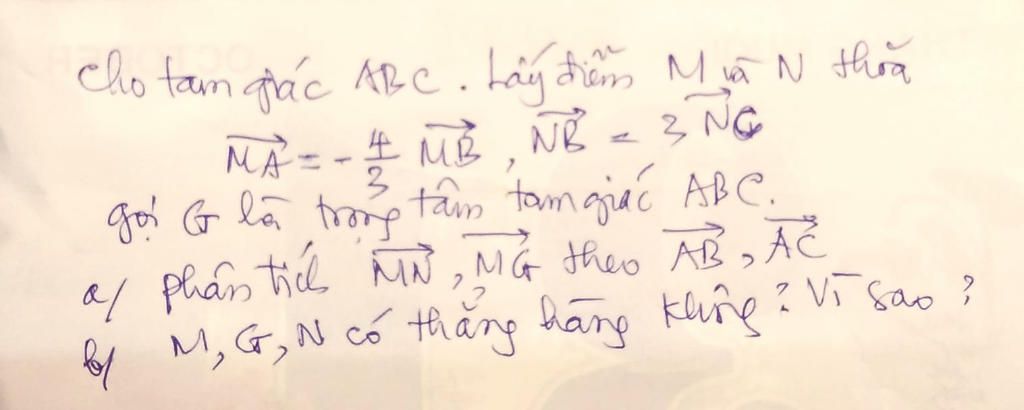 Cho tam giác ABC. Lấy điểm M và N thỏa
$\overrightarrow{MA} = -\frac{4}{3} \overrightarrow{MB}, \overrightarrow{NB} = 3 \overrightarrow{NC}$
gọi G là trọng tâm tam giác ABC.
a/ phân tích $\overrightarrow{MN}, \overrightarrow{MG}$ theo $\overrightarrow{AB}, \overrightarrow{AC}$
b/ M, G, N có thẳng hàng không? Vì sao?